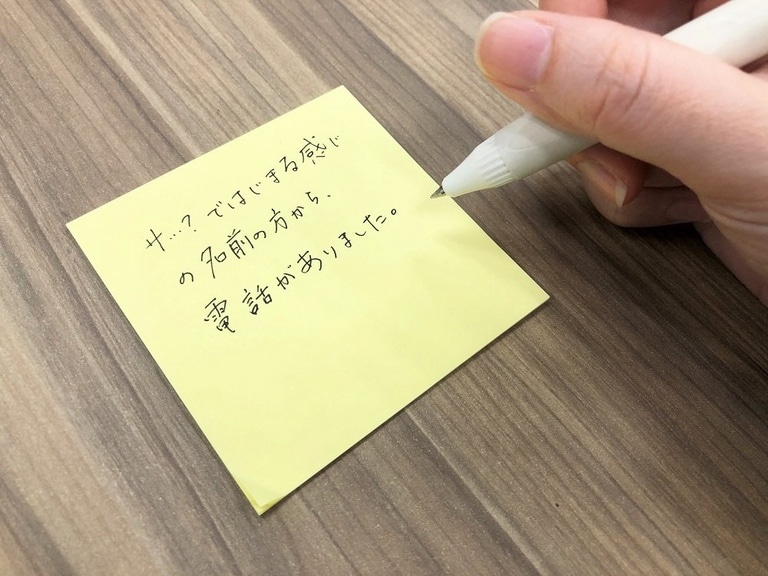 サ…？ではじまる感じ
の名前の方から、
電話がありました。